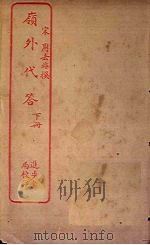 宋 周去非撰
嶺外代答 下冊
進步
局校